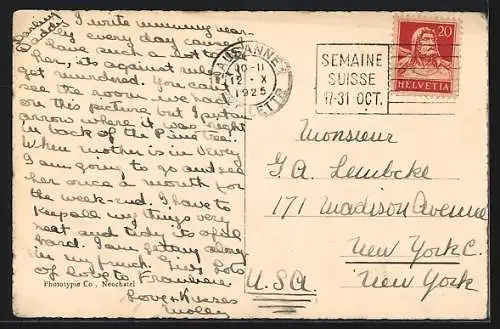 Darling
Daddy
I write running
every day cause I
have such a lot to
her, its against rules
get murdered. You can't
see the room we had
on this picture but I put an
arrow where it was right
in back of the Pine tree.
When mother is in Vevey
I am going to go and see
her once a month for
the week-end. I have to
keep all my things very
neat and tidy its ofull
hard. I am getting along
in my french. Give lots
of love to Fraulein
Love + Kisses
Molly
Phototypie Co., Neuchatel
LAUSANNE
10-11
12-X
1925
LETTR.
SEMAINE
SUISSE
17-31 OCT.
20
HELVETIA
Monsieur
G.A. Lembcke
171 Madison Avenue
New York C.
New York
U.S.A.